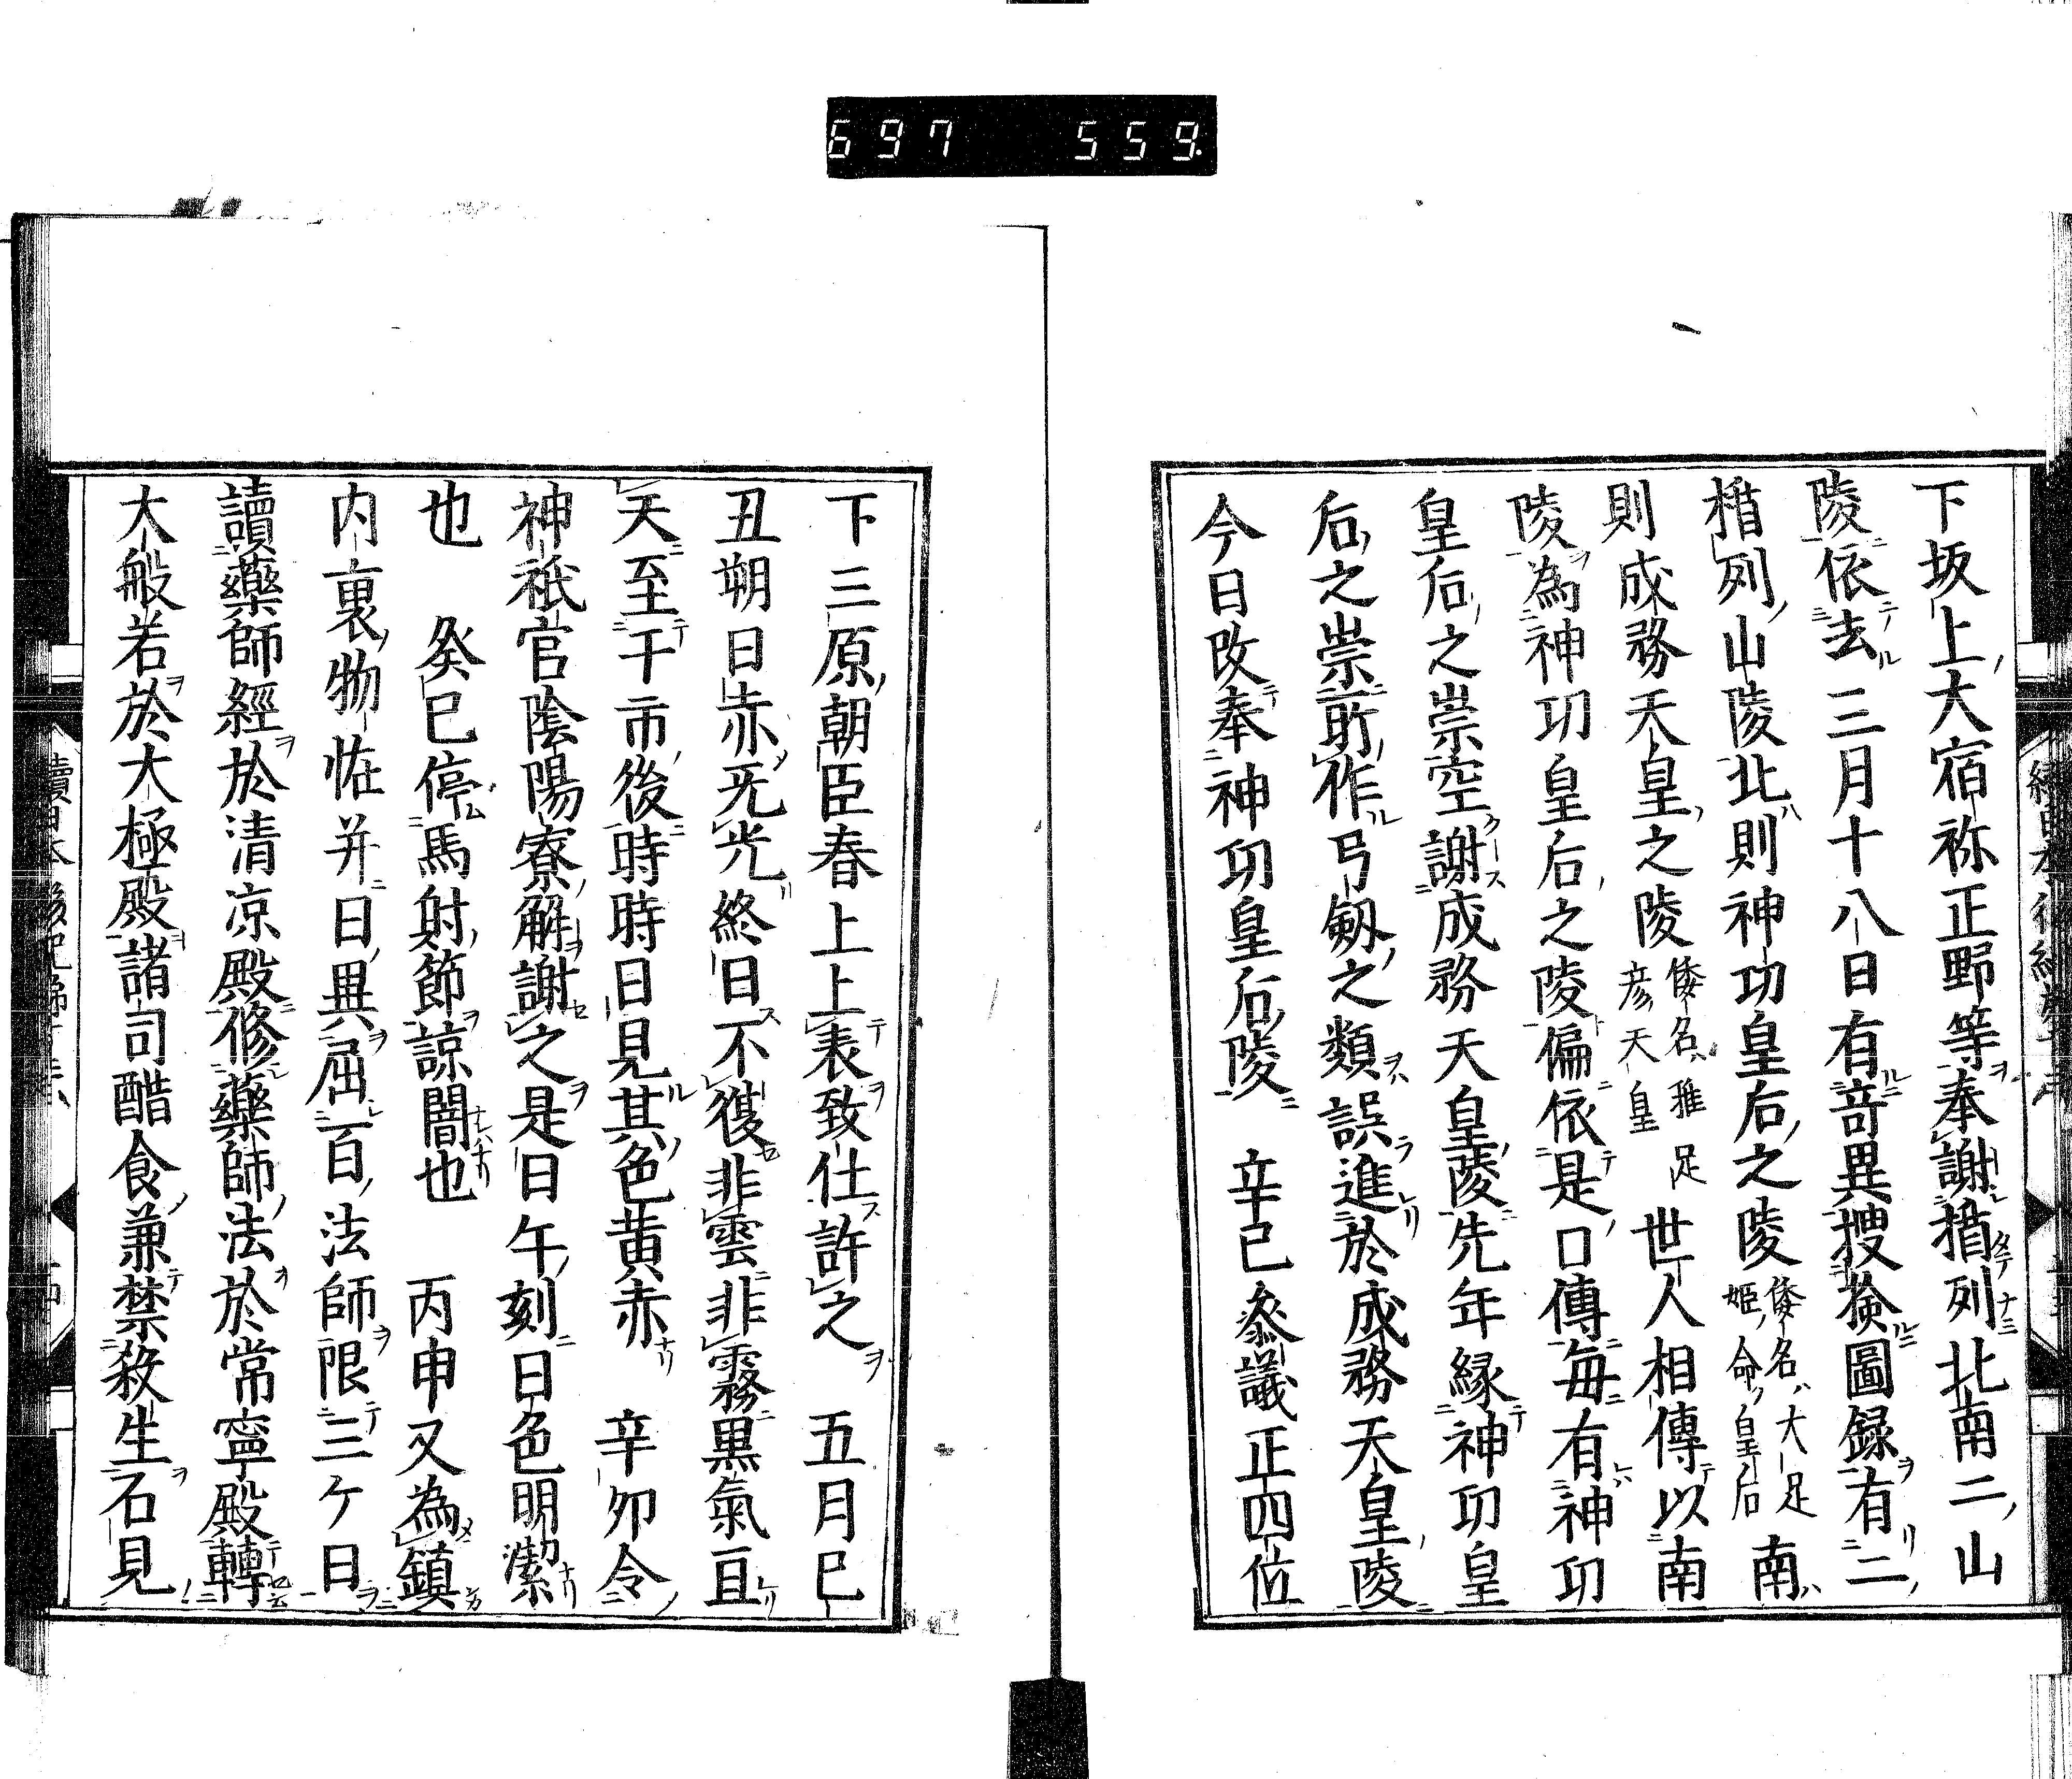 697 559
下坂上大宿祢正野等奉謝楯列北南二山
陵依去三月十八日有竒異捜撿圖録有二
楯列山陵北則神功皇后之陵倭名大足姫命皇后南
則成務天皇之陵倭名稚足彦天皇世人相傳以南
陵為神功皇后之陵偏依是口傳毎有神功
皇后之崇空謝成務天皇陵先年縁神功皇
后之崇所作弓劔之類誤進於成務天皇陵
今日改奉神功皇后陵 辛巳叅議正四位
下三原朝臣春上上表致仕許之 五月巳
丑朔日赤旡光終日不復非雲非霧黒氣亘
天至于市後時時日見其色黄赤 辛夘令
神祇官陰陽寮解謝之是日午刻日色明潔
也 癸巳停馬射節諒闇也 丙申又為鎮
内裏物恠并日異屈百法師限三ケ日
讀藥師經於清凉殿修藥師法於常寧殿轉
大般若於大極殿諸司醋食兼禁殺生石見